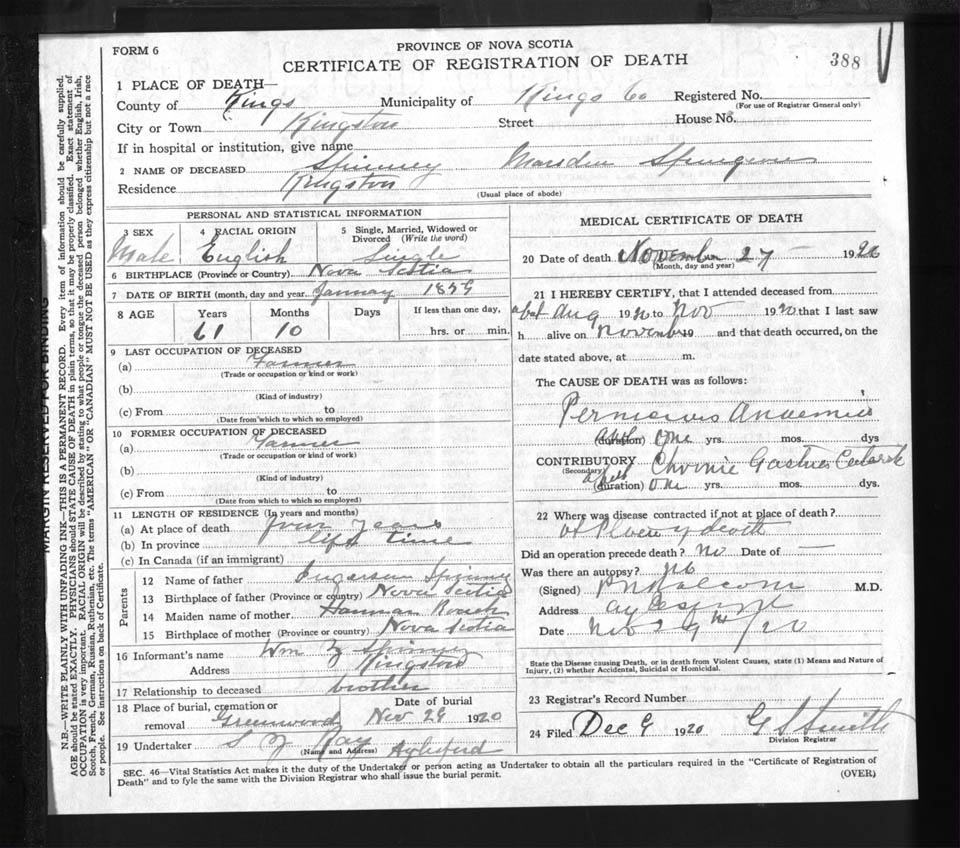 PROVINCE OF NOVA SCOTIA
FORM 6
CERTIFICATE OF REGISTRATION OF DEATH
388
1 PLACE OF DEATH—
County of Kings Municipality of Kings Co Registered No.
(For use of Registrar General only)
City or Town Kingston Street House No.
If in hospital or institution, give name
2 NAME OF DECEASED Spinney Marsden Spurgeon
Residence Kingston
(Usual place of abode)
PERSONAL AND STATISTICAL INFORMATION
3 SEX 4 RACIAL ORIGIN 5 Single, Married, Widowed or Divorced (Write the word)
Male English Single
6 BIRTHPLACE (Province or Country) Nova Scotia
7 DATE OF BIRTH (month, day and year January 1859
8 AGE Years Months Days If less than one day,
61 10 hrs. or min.
9 LAST OCCUPATION OF DECEASED
(a) Farmer
(Trade or occupation or kind or work)
(b)
(Kind of industry)
(c) From to
(Date from which to which so employed)
10 FORMER OCCUPATION OF DECEASED
(a) Farmer
(Trade or occupation or kind of work)
(b)
(Kind of industry)
(c) From to
(Date from which to which so employed)
11 LENGTH OF RESIDENCE (In years and months)
(a) At place of death four years
(b) In province life time
(c) In Canada (if an immigrant)
Parents
12 Name of father Spinney
13 Birthplace of father (Province or country) Nova Scotia
14 Maiden name of mother Hannah
15 Birthplace of mother (Province or country) Nova Scotia
16 Informant's name Wm Spinney
Address Kingston
17 Relationship to deceased brother
18 Place of burial, cremation or removal Greenwood Date of burial Nov 29 1920
19 Undertaker S Ray Aylesford
(Name and Address)
MEDICAL CERTIFICATE OF DEATH
20 Date of death November 27 1920
(Month, day and year)
21 I HEREBY CERTIFY, that I attended deceased from
Aug 1920 to Nov 1920 that I last saw
h alive on November 19 and that death occurred, on the
date stated above, at m.
The CAUSE OF DEATH was as follows:
Pernicious Anaemia
(duration) One yrs. mos. dys
CONTRIBUTORY Chronic Gastric
(Secondary)
(duration) one yrs. mos. dys.
22 Where was disease contracted if not at place of death?
at Place of death
Did an operation precede death? No Date of —
Was there an autopsy? No
(Signed) M.D.
Address Aylesford
Date Nov 29th/20
State the Disease causing Death, or in death from Violent Causes, state (1) Means and Nature of
Injury, (2) whether Accidental, Suicidal or Homicidal.
23 Registrar's Record Number
24 Filed Dec 9 1920 G S Smith
Division Registrar
SEC. 46—Vital Statistics Act makes it the duty of the Undertaker or person acting as Undertaker to obtain all the particulars required in the "Certificate of Registration of
Death" and to fyle the same with the Division Registrar who shall issue the burial permit.
(OVER)
MARGIN RESERVED FOR BINDING
N.B.—WRITE PLAINLY WITH UNFADING INK—THIS IS A PERMANENT RECORD. Every item of information should be carefully supplied.
AGE should be stated EXACTLY. PHYSICIANS should STATE CAUSE OF DEATH in plain terms, so that it may be properly classified. Exact statement of
OCCUPATION is very important. RACIAL ORIGIN will be described by stating to what people or tongue the deceased person belonged whether English, Irish,
Scotch, French, German, Russian, Ruthenian, etc. The terms "AMERICAN" OR "CANADIAN" MUST NOT BE USED as they express citizenship but not a race
or people. See instructions on back of Certificate.